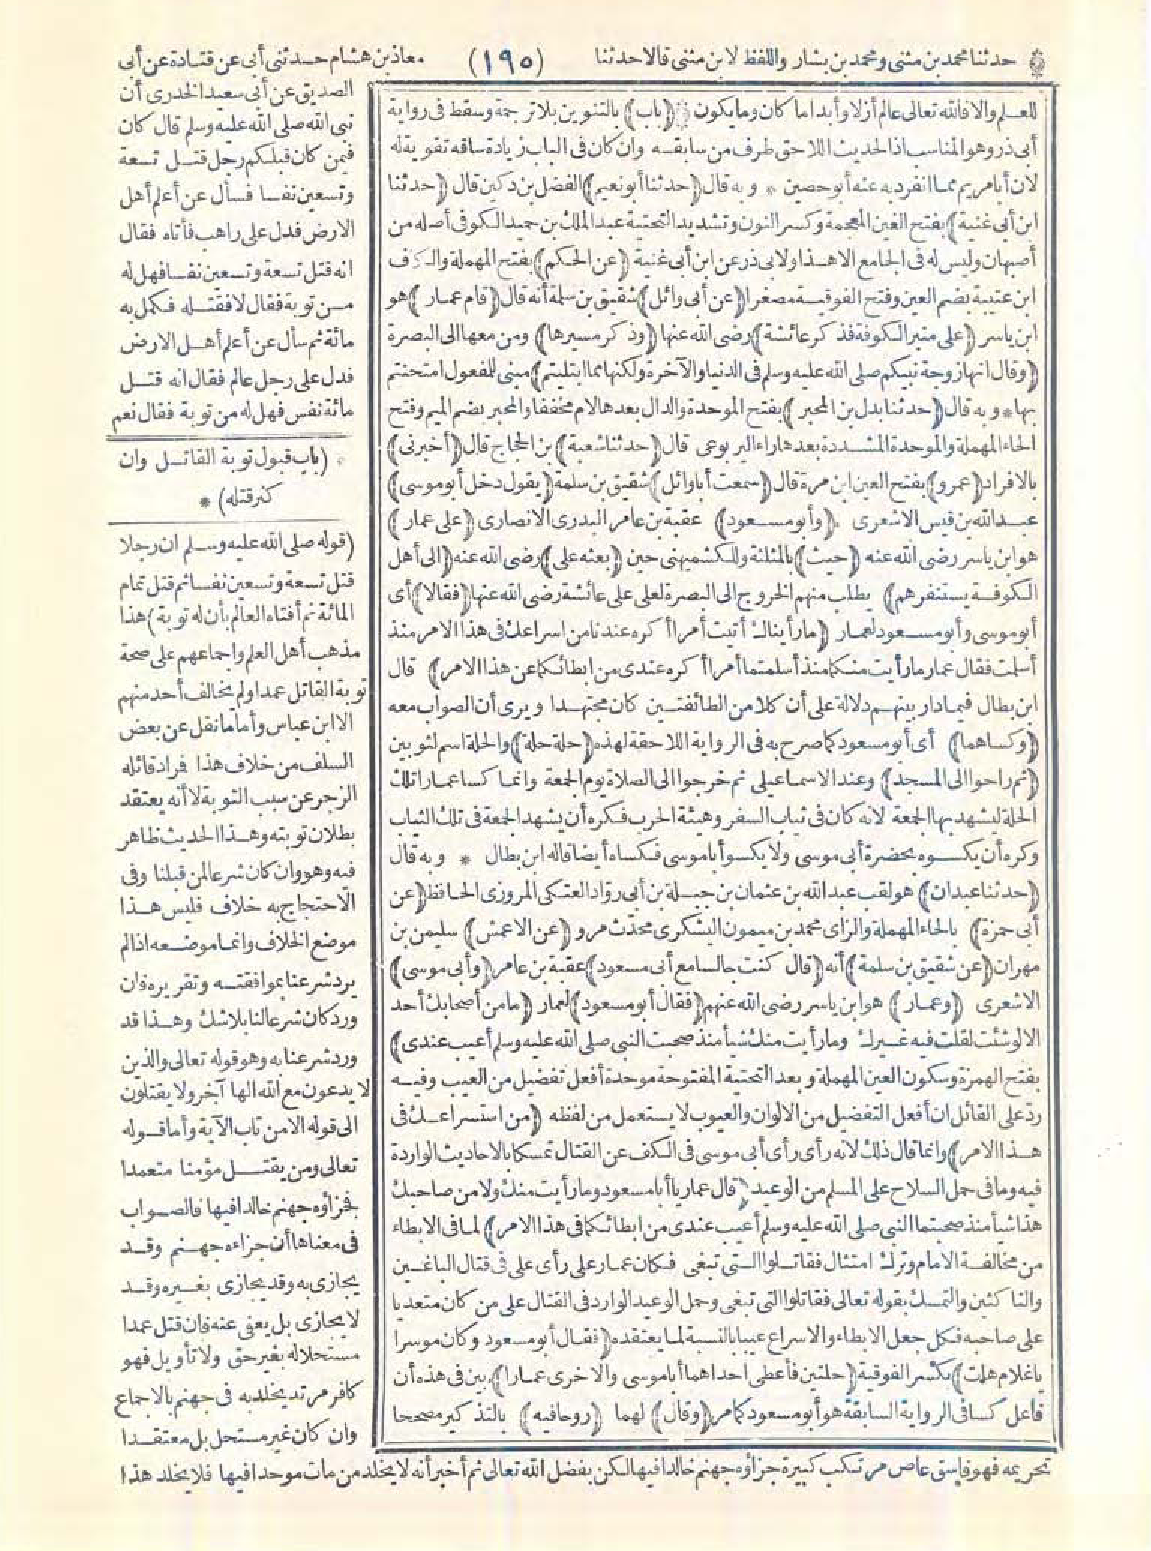 حدثنا محمد بن مثنى ومحمد بن بشار واللفظ لابن مثنى قالا حدثنا (١٩٥) معاذ بن هشام حدثنى أبى عن قتادة عن أبى
للعلم والا فالله تعالى عالم أزلا وأبدا ما كان وما يكون (باب) بالتنوين بلا ترجمة وسقط فى رواية
أبى ذر وهو المناسب اذ الحديث اللاحق طرف من سابقه وان كان فى الباب زيادة ساقه تقوية له
لان أبا مريم مما انفرد به عنه أبو حصين * وبه قال (حدثنا أبو نعيم) الفضل بن دكين قال (حدثنا
ابن أبى غنية) بفتح الغين المعجمة وكسر النون وتشديد التحتية عبد الملك بن حميد الكوفى أصله من
أصبهان وليس له فى الجامع الا هذا ولابى ذر عن ابن أبى غنية (عن الحكم) بفتح المهملة والكاف
ابن عتيبة بضم العين وفتح الفوقية مصغرا (عن أبى وائل) شقيق بن سلمة أنه قال (قام عمار) هو
ابن ياسر (على منبر الكوفة فذكر عائشة) رضى الله عنها (وذكر مسيرها) ومن معها الى البصرة
(وقال انها زوجة نبيكم صلى الله عليه وسلم فى الدنيا والآخرة ولكنها مما ابتليتم) مبنى للمفعول امتحنتم
بها * وبه قال (حدثنا بدل بن المحبر) بفتح الموحدة والدال بعدها لام مخففا والمحبر بضم الميم وفتح
الحاء المهملة والموحدة المشددة بعدها راء اليربوعى قال (حدثنا شعبة) بن الحجاج قال (أخبرنى)
بالافراد (عمرو) بفتح العين ابن مرة قال (سمعت أبا وائل) شقيق بن سلمة (يقول دخل أبو موسى)
عبد الله بن قيس الاشعرى (وأبو مسعود) عقبة بن عامر البدرى الانصارى (على عمار)
هو ابن ياسر رضى الله عنه (حيث) بالمثلثة وللكشميهنى حين (بعثه على) رضى الله عنه (الى أهل
الكوفة يستنفرهم) يطلب منهم الخروج الى البصرة لعلى على عائشة رضى الله عنها (فقالا) أى
أبو موسى وأبو مسعود لعمار (ما رأيناك أتيت أمرا أكره عندنا من اسراعك فى هذا الامر منذ
أسلمت فقال عمار ما رأيت منكما منذ أسلمتما أمرا أكره عندى من ابطائكما عن هذا الامر) قال
ابن بطال فيما دار بينهم دلالة على أن كلا من الطائفتين كان مجتهدا ويرى أن الصواب معه
(وكساهما) أى أبو مسعود كما صرح به فى الرواية اللاحقة لهذه (حلة حلة) والحلة اسم لثوبين
(ثم راحوا الى المسجد) وعند الاسماعيلى ثم خرجوا الى الصلاة يوم الجمعة وانما كسا عمارا تلك
الحلة ليشهد بها الجمعة لانه كان فى ثياب السفر وهيئة الحرب فكره أن يشهد الجمعة فى تلك الثياب
وكره أن يكسوه بحضرة أبى موسى ولا يكسو أبا موسى فكساه أيضا قاله ابن بطال * وبه قال
(حدثنا عبدان) هو لقب عبد الله بن عثمان بن جبلة بن أبى رواد العتكى المروزى الحافظ (عن
أبى حمزة) بالحاء المهملة والزاى محمد بن ميمون اليشكرى محدث مرو (عن الاعمش) سليمن بن
مهران (عن شقيق بن سلمة) أنه (قال كنت جالسا مع أبى مسعود) عقبة بن عامر (وأبى موسى)
الاشعرى (وعمار) هو ابن ياسر رضى الله عنهم (فقال أبو مسعود) لعمار (ما من أصحابك أحد
الا لو شئت لقلت فيه غيرك وما رأيت منك شيأ منذ صحبت النبى صلى الله عليه وسلم أعيب عندى)
بفتح الهمزة وسكون العين المهملة وبعد التحتية المفتوحة موحدة أفعل تفضيل من العيب وفيه
رد على القائل ان أفعل التفضيل من الالوان والعيوب لا يستعمل من لفظه (من استسراعك فى
هذا الامر) وانما قال ذلك لانه رأى رأى أبى موسى فى الكف عن القتال تمسكا بالاحاديث الواردة
فيه وما فى حمل السلاح على المسلم من الوعيد (قال عمار يا أبا مسعود وما رأيت منك ولا من صاحبك
هذا شيأ منذ صحبتما النبى صلى الله عليه وسلم أعيب عندى من ابطائكما فى هذا الامر) لما فى الابطاء
من مخالفة الامام وترك امتثال فقاتلوا التى تبغى فكان عمار على رأى على فى قتال الباغين
والناكثين والتمسك بقوله تعالى فقاتلوا التى تبغى وحمل الوعيد الوارد فى القتال على من كان متعديا
على صاحبه فكل جعل الابطاء والاسراع عيبا بالنسبة لما يعتقده (فقال أبو مسعود وكان موسرا
يا غلام هات) بكسر الفوقية (حلتين فأعطى احداهما أبا موسى والاخرى عمارا) بين فى هذه أن
فاعل كسا فى الرواية السابقة هو أبو مسعود كما مر (وقال) لهما (روحا فيه) بالتذكير مصححا
الصديق عن أبى سعيد الخدرى أن
نبى الله صلى الله عليه وسلم قال كان
فيمن كان قبلكم رجل قتل تسعة
وتسعين نفسا فسأل عن أعلم أهل
الارض فدل على راهب فأتاه فقال
انه قتل تسعة وتسعين نفسا فهل له
من توبة فقال لا فقتله فكمل به
مائة ثم سأل عن أعلم أهل الارض
فدل على رجل عالم فقال انه قتل
مائة نفس فهل له من توبة فقال نعم
* (باب قبول توبة القاتل وان
كثر قتله) *
(قوله صلى الله عليه وسلم ان رجلا
قتل تسعة وتسعين نفسا ثم قتل تمام
المائة ثم أفتاه العالم بأن له توبة) هذا
مذهب أهل العلم واجماعهم على صحة
توبة القاتل عمدا ولم يخالف أحد منهم
الا ابن عباس وأما ما نقل عن بعض
السلف من خلاف هذا فراد قائله
الزجر عن سبب التوبة لا أنه يعتقد
بطلان توبته وهذا الحديث ظاهر
فيه وهو وان كان شرعا لمن قبلنا وفى
الاحتجاج به خلاف فليس هذا
موضع الخلاف وانما موضعه اذا لم
يرد شرعنا بموافقته وتقريره فان
ورد كان شرعا لنا بلا شك وهذا قد
ورد شرعنا به وهو قوله تعالى والذين
لا يدعون مع الله الها آخر ولا يقتلون
الى قوله الا من تاب الآية وأما قوله
تعالى ومن يقتل مؤمنا متعمدا
فجزاؤه جهنم خالدا فيها فالصواب
فى معناها أن جزاءه جهنم وقد
يجازى به وقد يجازى بغيره وقد
لا يجازى بل يعفى عنه فان قتل عمدا
مستحلا له بغير حق ولا تأويل فهو
كافر مرتد يخلد به فى جهنم بالاجماع
وان كان غير مستحل بل معتقدا
تحريمه فهو فاسق عاص مرتكب كبيرة جزاؤه جهنم خالدا فيها لكن بفضل الله تعالى ثم أخبر أنه لا يخلد من مات موحدا فيها فلا يخلد هذا